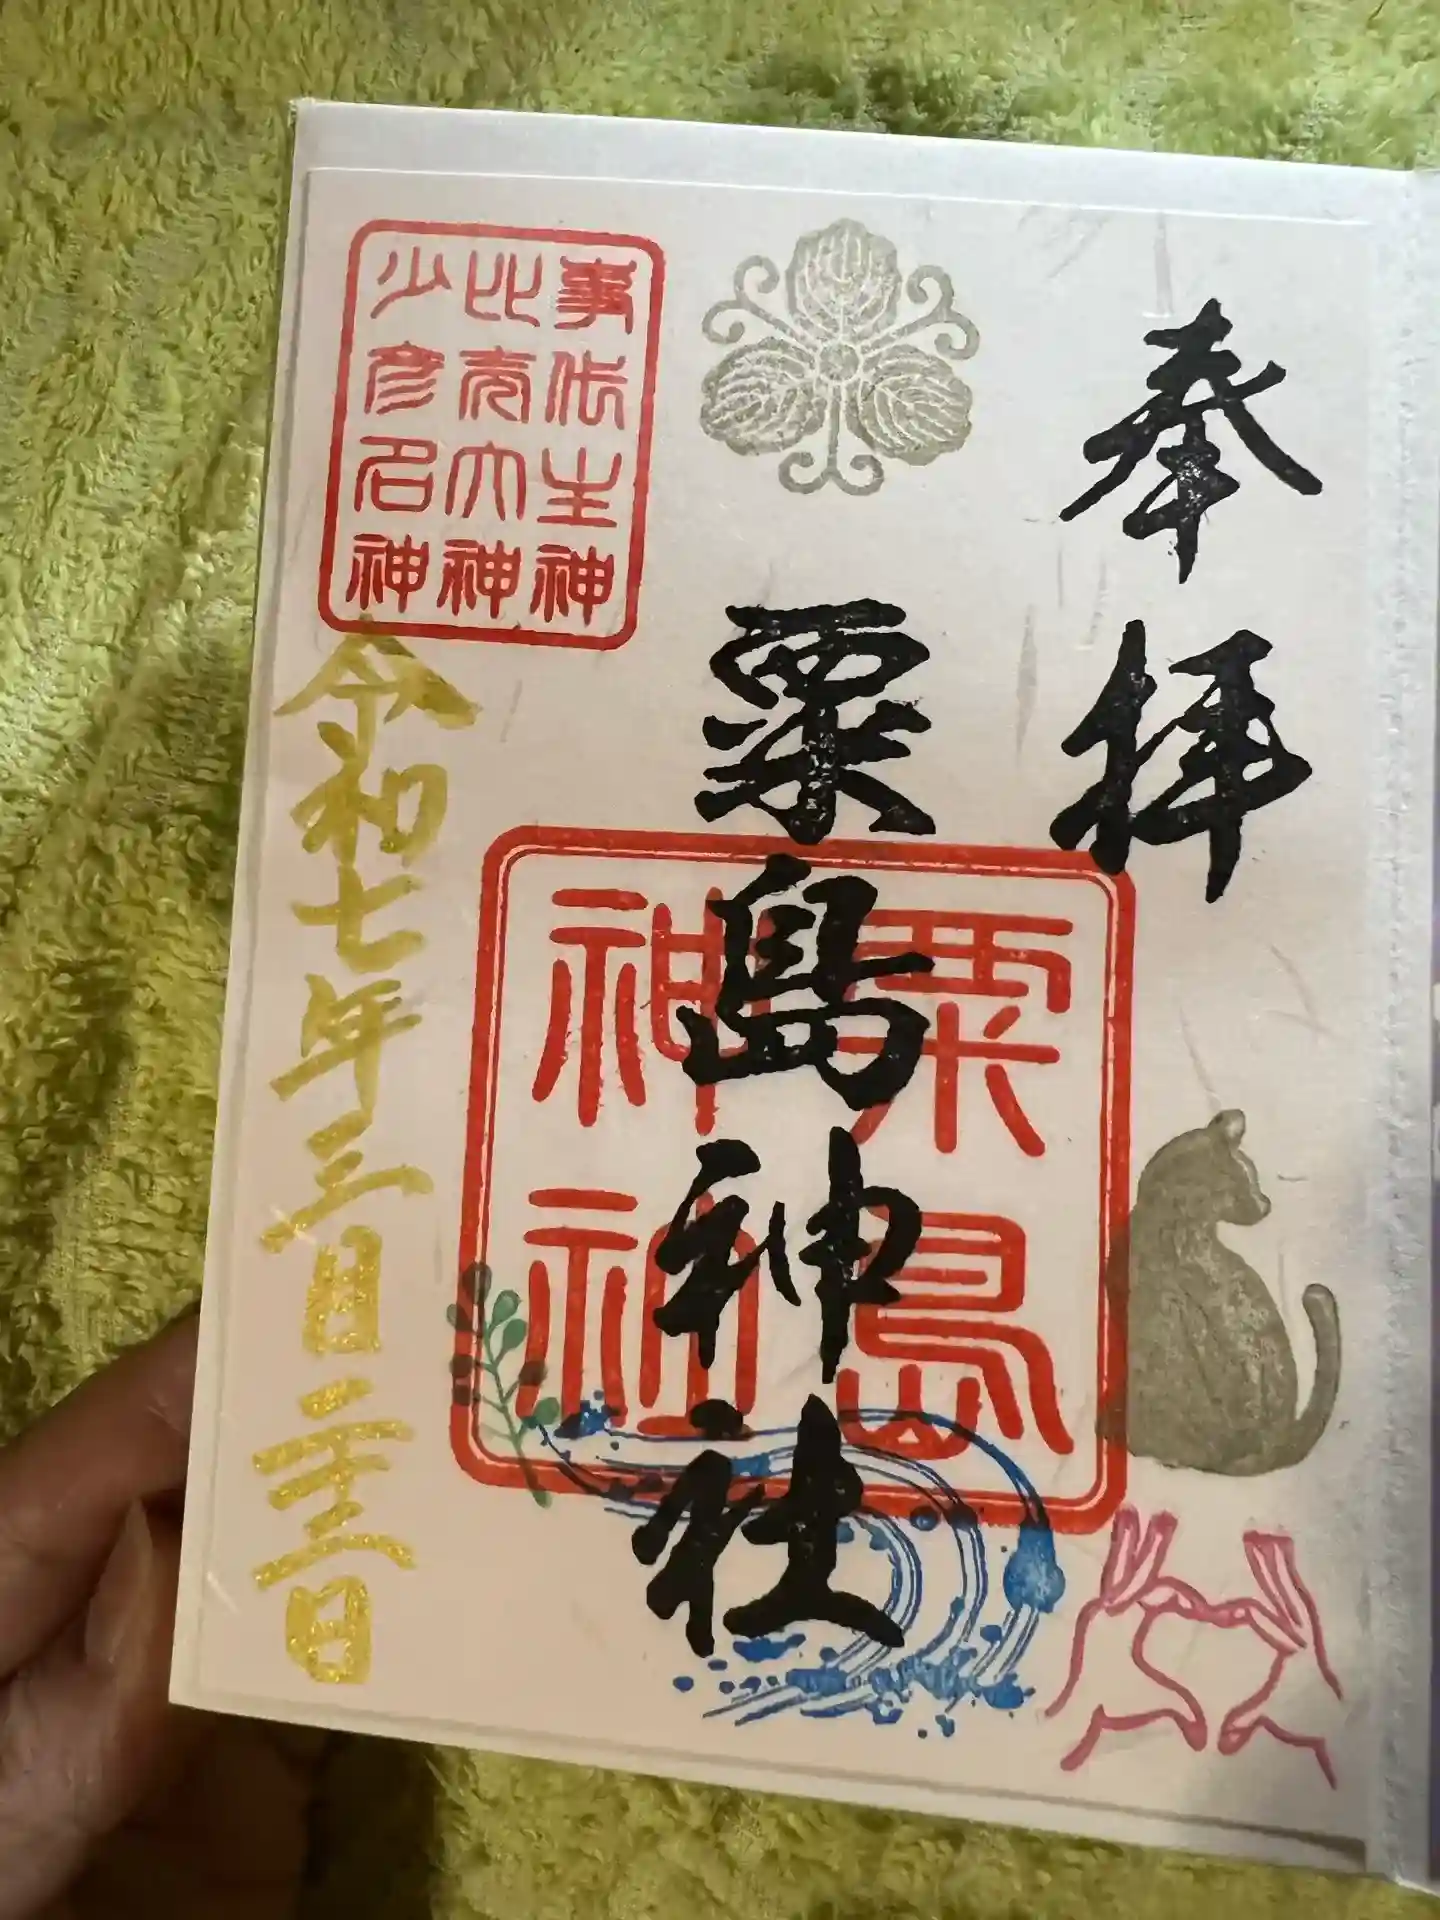 奉拝
粟島神社
粟島
神社
事代主神
比売大神
少彦名神
令和七年三月二十三日